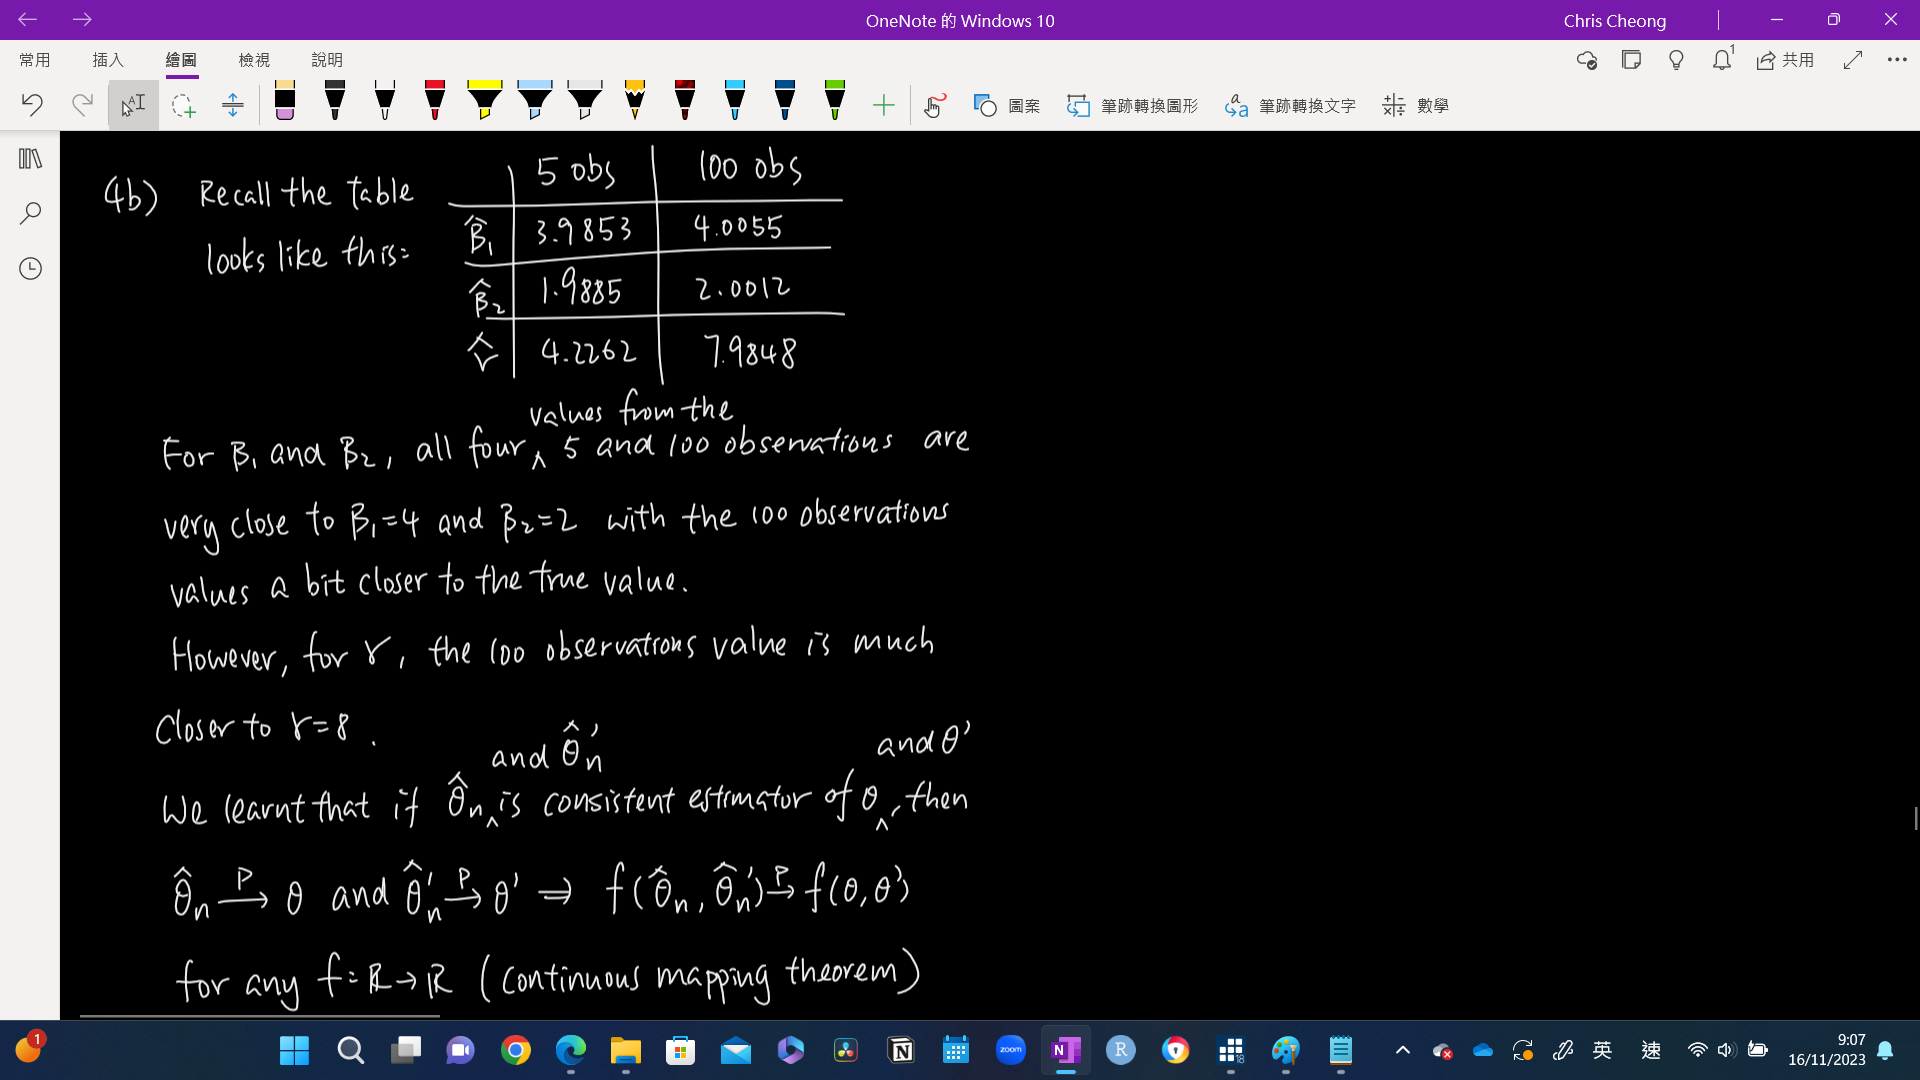 OneNote 的 Windows 10
Chris Cheong
常用 插入 繪圖 檢視 說明
1
共用
圖案 筆跡轉換圖形 筆跡轉換文字 數學
5 obs 100 obs
(4b) Recall the table
looks like this:
β̂₁ 3.9853 4.0055
β̂₂ 1.9885 2.0012
r̂ 4.2262 7.9848
values from the
For β₁ and β₂, all four ^ 5 and 100 observations are
very close to β₁=4 and β₂=2 with the 100 observations
values a bit closer to the true value.
However, for r, the 100 observations value is much
closer to r=8.
and θ̂'ₙ and θ'
We learnt that if θ̂ₙ ^ is consistent estimator of θ ^, then
θ̂ₙ →ᴾ θ and θ̂'ₙ →ᴾ θ' ⟹ f(θ̂ₙ, θ̂'ₙ) →ᴾ f(θ, θ')
for any f: ℝ→ℝ (continuous mapping theorem)
1
zoom
N
R
18
英 速
9:07
16/11/2023